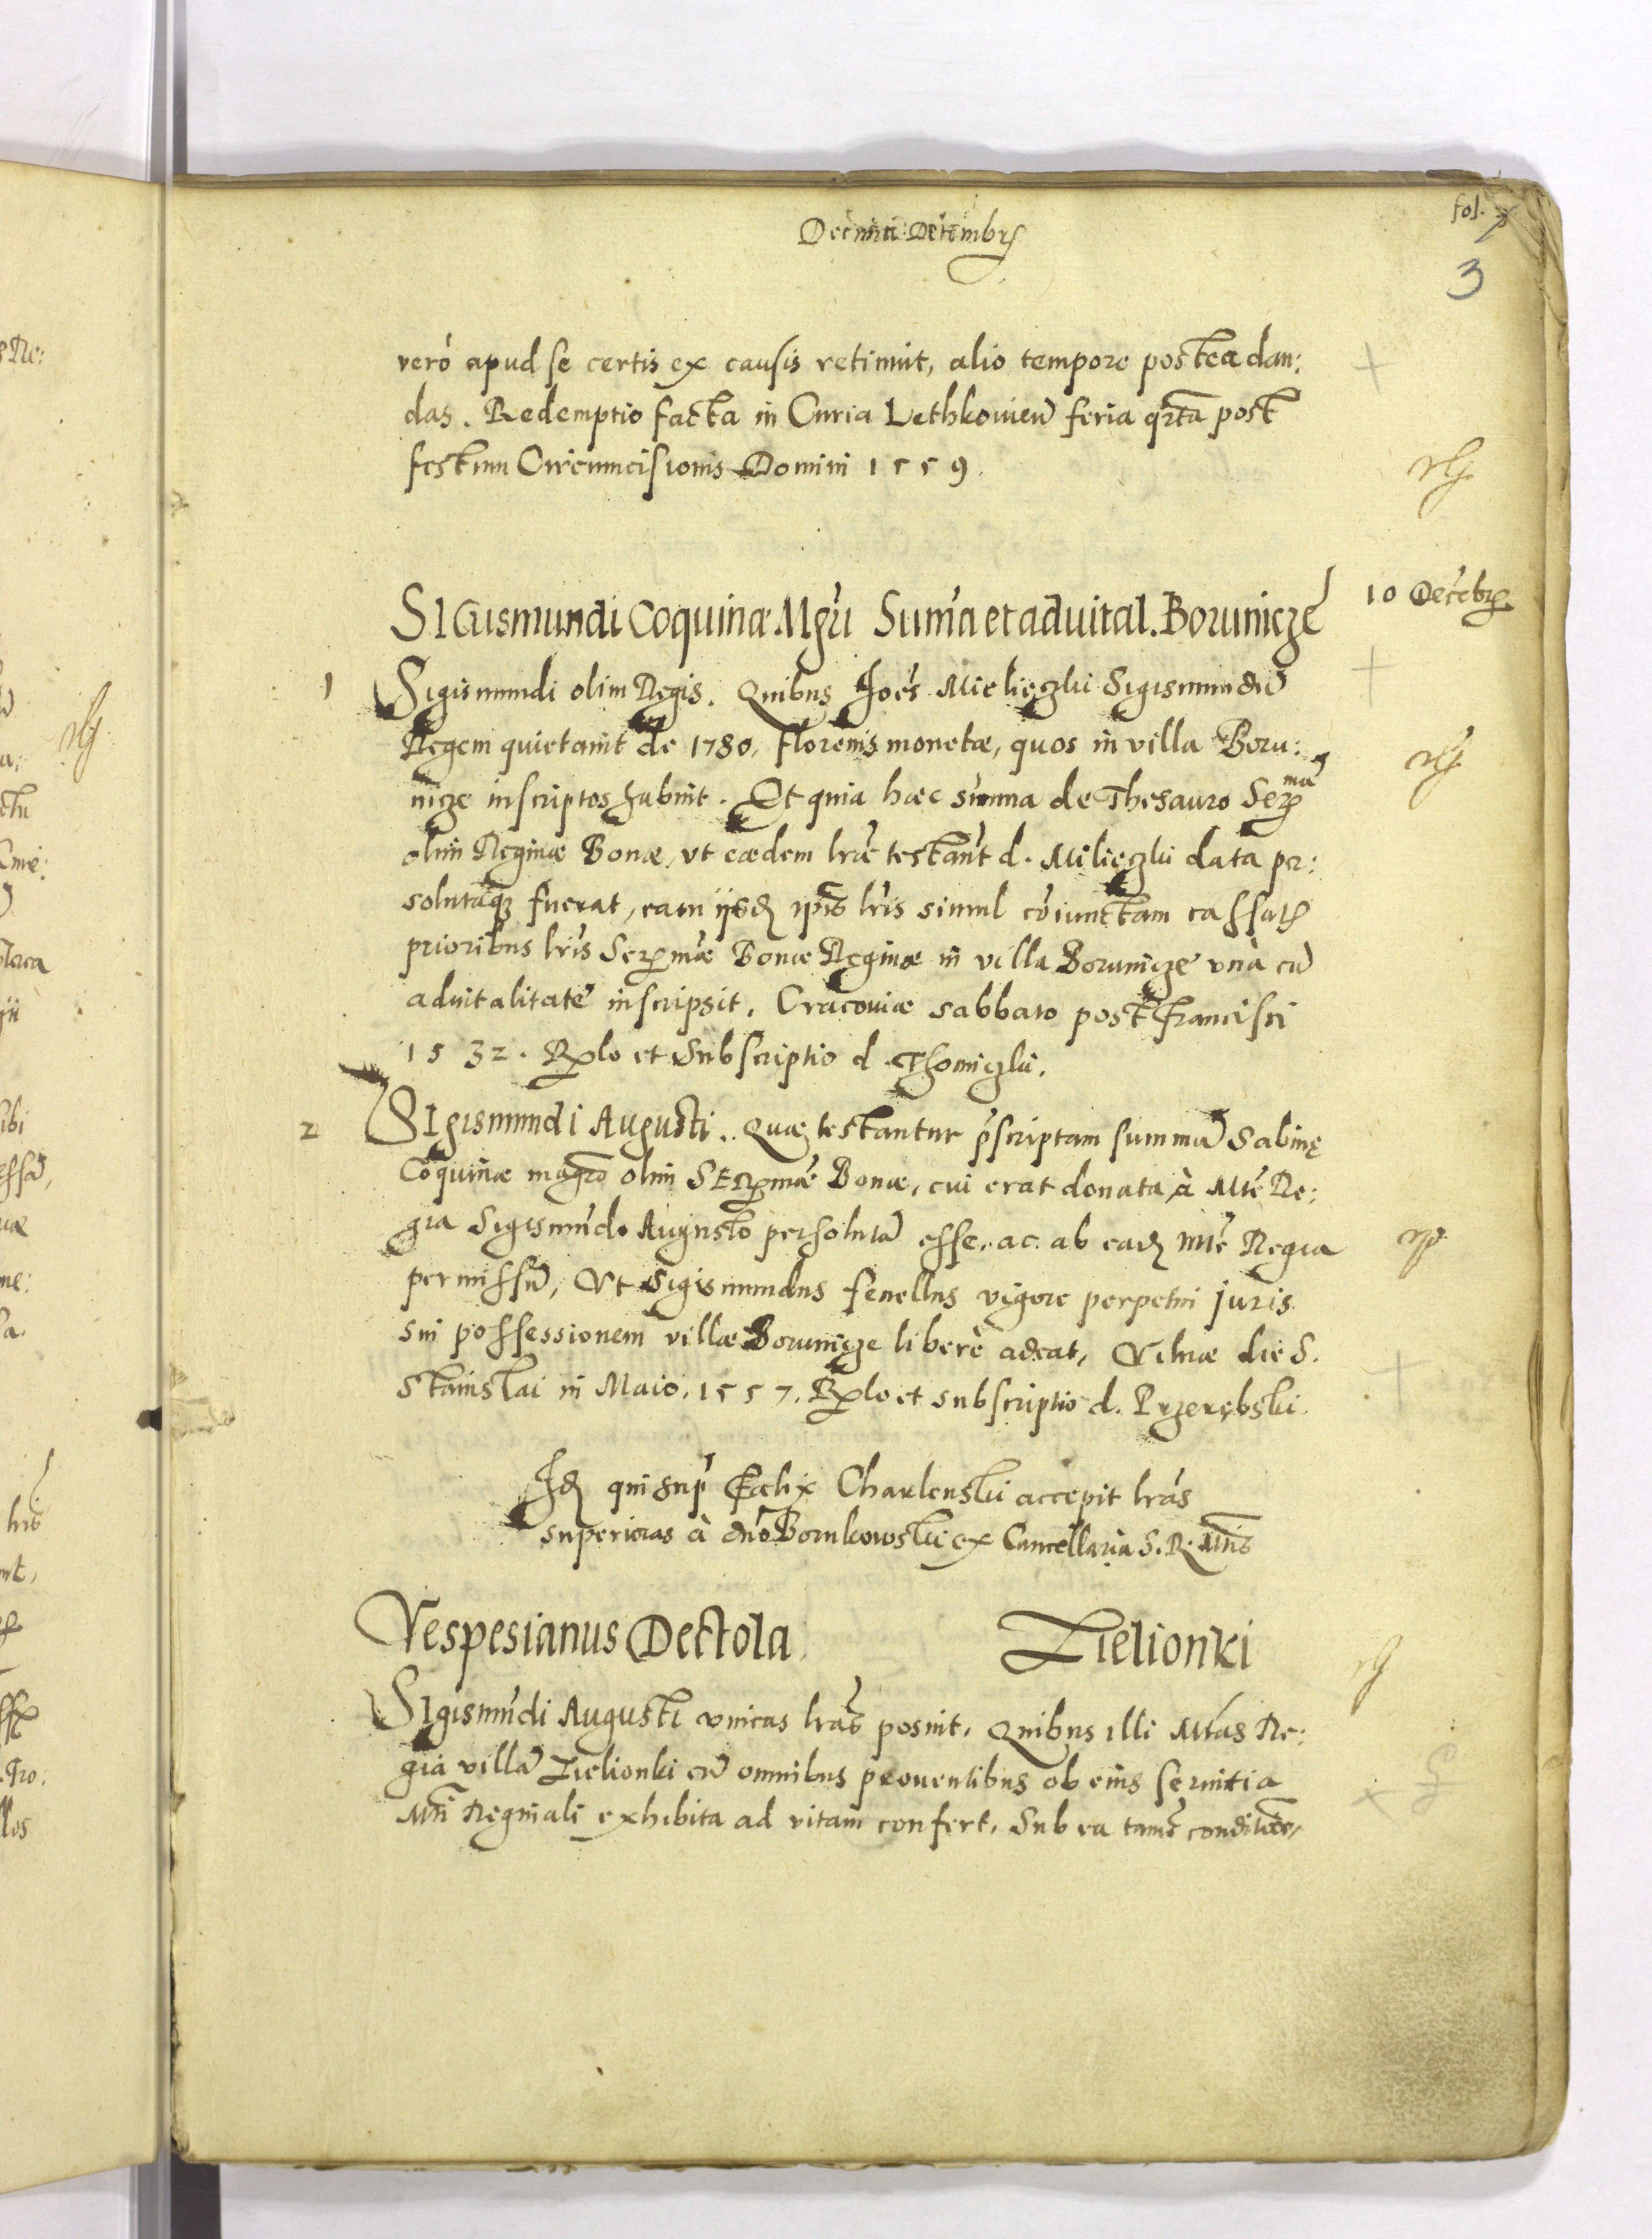 Decima Decembris
fol.
3
verò apud se certis ex causis retinuit, alio tempore postea dan:
das. Redemptio facta in Curia Lethkouien̄ feria qrta post
festum Circumcisionis Domini 1559.
10 Decēbr
SIGismundi Coquinæ Mgri Sum̄a et aduital. Borunicze
1 Sigismundi olim Regis. Quibus Joēs Mielięczki Sigismundū
Regem quietauit de 1780, florenis monetæ, quos in villa Boru:
nicze inscriptos habuit. Et quia hæc sum̄a de Thesauro Serma
olim Reginæ Bonæ, vt eædem lræ testant̄ d. Milięczki data per:
solutaq; fuerat, eam ijsd ipīs lris simul cōiunctam cassatis
prioribus lris Sermæ Bonæ Reginæ in villa Borunicze vnà cū
aduitalitate inscripsit, Cracouiæ sabbato post Francisci
1532. Rlo et Subscriptio d. Thomiczki.
2 SIgismundi Augusti. Quæ testantur pscriptam summā Sabinę
Coquinæ magro olim SErmæ Bonæ, cui erat donata à Mte Re:
gia Sigismūdo Augusto persolutā esse, ac ab ead Mte Regia
permissū, Vt Sigismundus fenellus vigore perpetui juris
sui possessionem villæ Borunicze liberè adeat, Vilnæ die S.
Stanislai in Maio, 1557. Rlo et subscriptio d. Przerębski.
Id qui sup Fælix Charlenski accepit lras
superioras à dno Bornkowski ex Cancellaria S. R. Mtis
Vespesianus Dectola, Zielionki
SIgismūdi Augusti vnicas lras posuit, Quibus illi Mtas Re:
gia villā Zielionki cū omnibus prouentibus ob eius seruitia
Mti Reginali exhibita ad vitam confert, Sub ea tamē conditiōe,